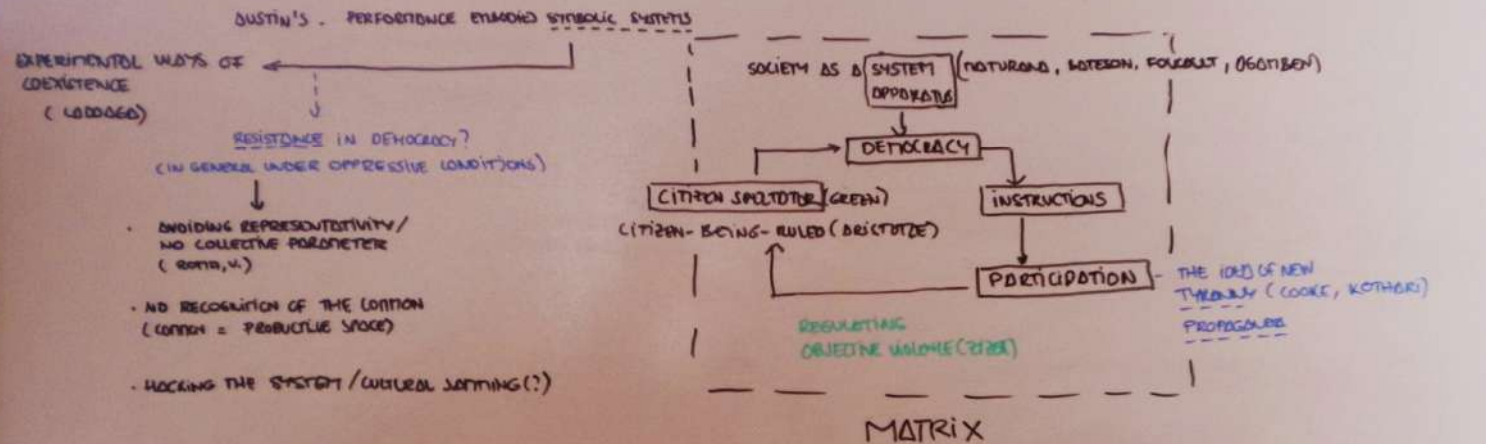 AUSTIN'S. PERFORMANCE EMBODIED SYMBOLIC SYSTEMS
EXPERIMENTAL WAYS OF
COEXISTENCE
(LADDAGA)
RESISTANCE IN DEMOCRACY?
(IN GENERAL UNDER OPPRESSIVE CONDITIONS)
· AVOIDING REPRESENTATIVITY/
NO COLLECTIVE PARAMETER
(ROMA, V.)
· NO RECOGNITION OF THE COMMON
(COMMON = PRODUCTIVE SPACE)
· HACKING THE SYSTEM/CULTURAL JAMMING(?)
SOCIETY AS A SYSTEM (MATURANA, BATESON, FOUCAULT, AGAMBEN)
APPARATUS
DEMOCRACY
CITIZEN SPECTATOR (GREEN)
CITIZEN-BEING-RULED (ARISTOTLE)
INSTRUCTIONS
PARTICIPATION
THE IDEA OF NEW
TYRANNY (COOKE, KOTHARI)
PROPAGANDA
REGULATING
OBJECTIVE VIOLENCE (ZIZEK)
MATRIX